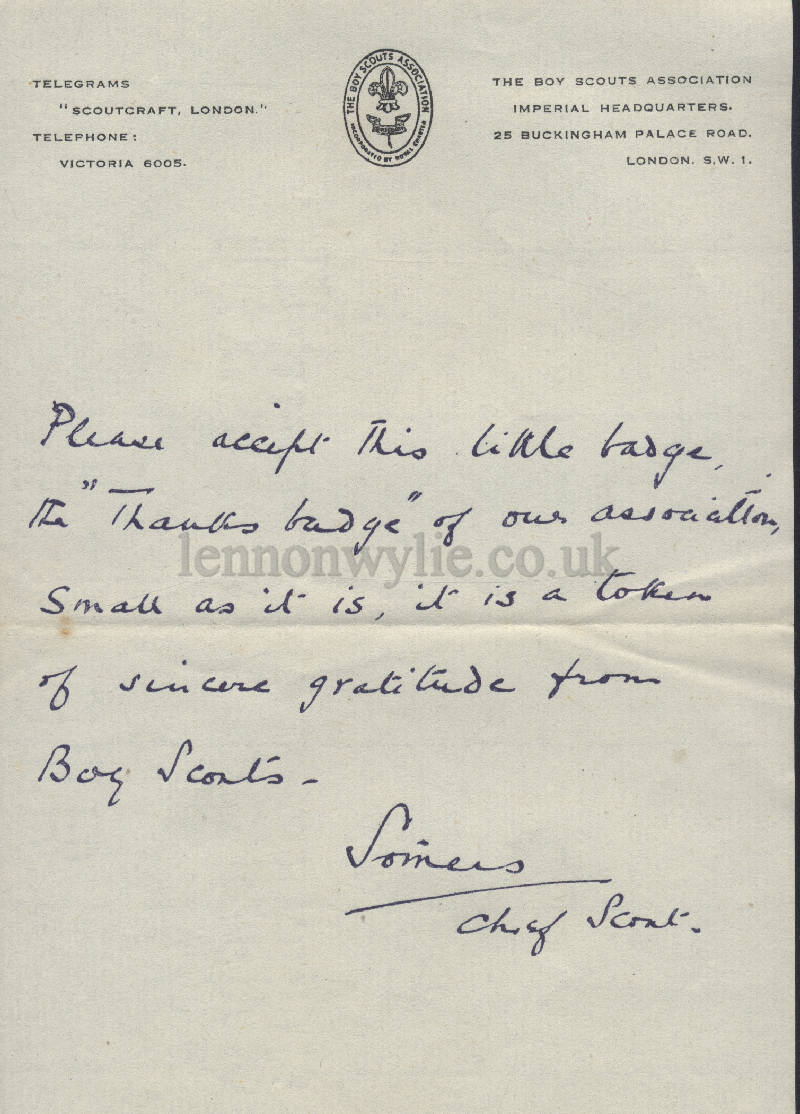 TELEGRAMS
"SCOUTCRAFT, LONDON."
TELEPHONE:
VICTORIA 6005.
THE BOY SCOUTS ASSOCIATION
INCORPORATED BY ROYAL CHARTER
THE BOY SCOUTS ASSOCIATION
IMPERIAL HEADQUARTERS.
25 BUCKINGHAM PALACE ROAD.
LONDON. S.W. 1.
Please accept this little badge,
the "Thanks badge" of our association,
lennonwylie.co.uk
Small as it is, it is a token
of sincere gratitude from
Boy Scouts -
Somers
Chief Scout.